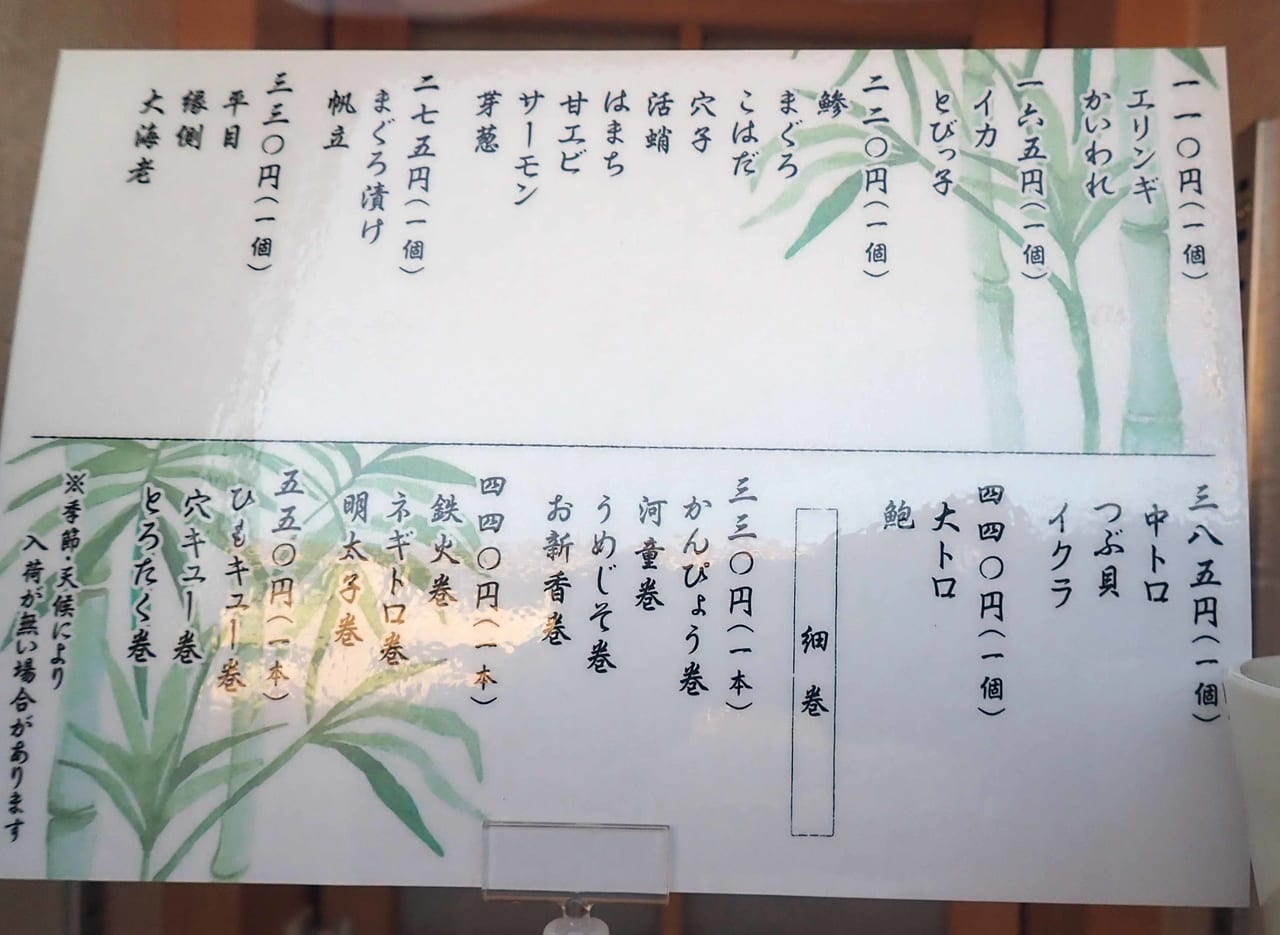 一一〇円(一個)
エリンギ
かいわれ
一六五円(一個)
イカ
とびっ子
二二〇円(一個)
鯵
まぐろ
こはだ
穴子
活蛸
はまち
甘エビ
サーモン
芽葱
二七五円(一個)
まぐろ漬け
帆立
三三〇円(一個)
平目
縁側
大海老
三八五円(一個)
中トロ
つぶ貝
イクラ
四四〇円(一個)
大トロ
鮑
細巻
三三〇円(一本)
かんぴょう巻
河童巻
うめじそ巻
お新香巻
四四〇円(一本)
鉄火巻
ネギトロ巻
明太子巻
五五〇円(一本)
ひもキュー巻
穴キュー巻
とろたく巻
※季節・天候により
入荷が無い場合があります